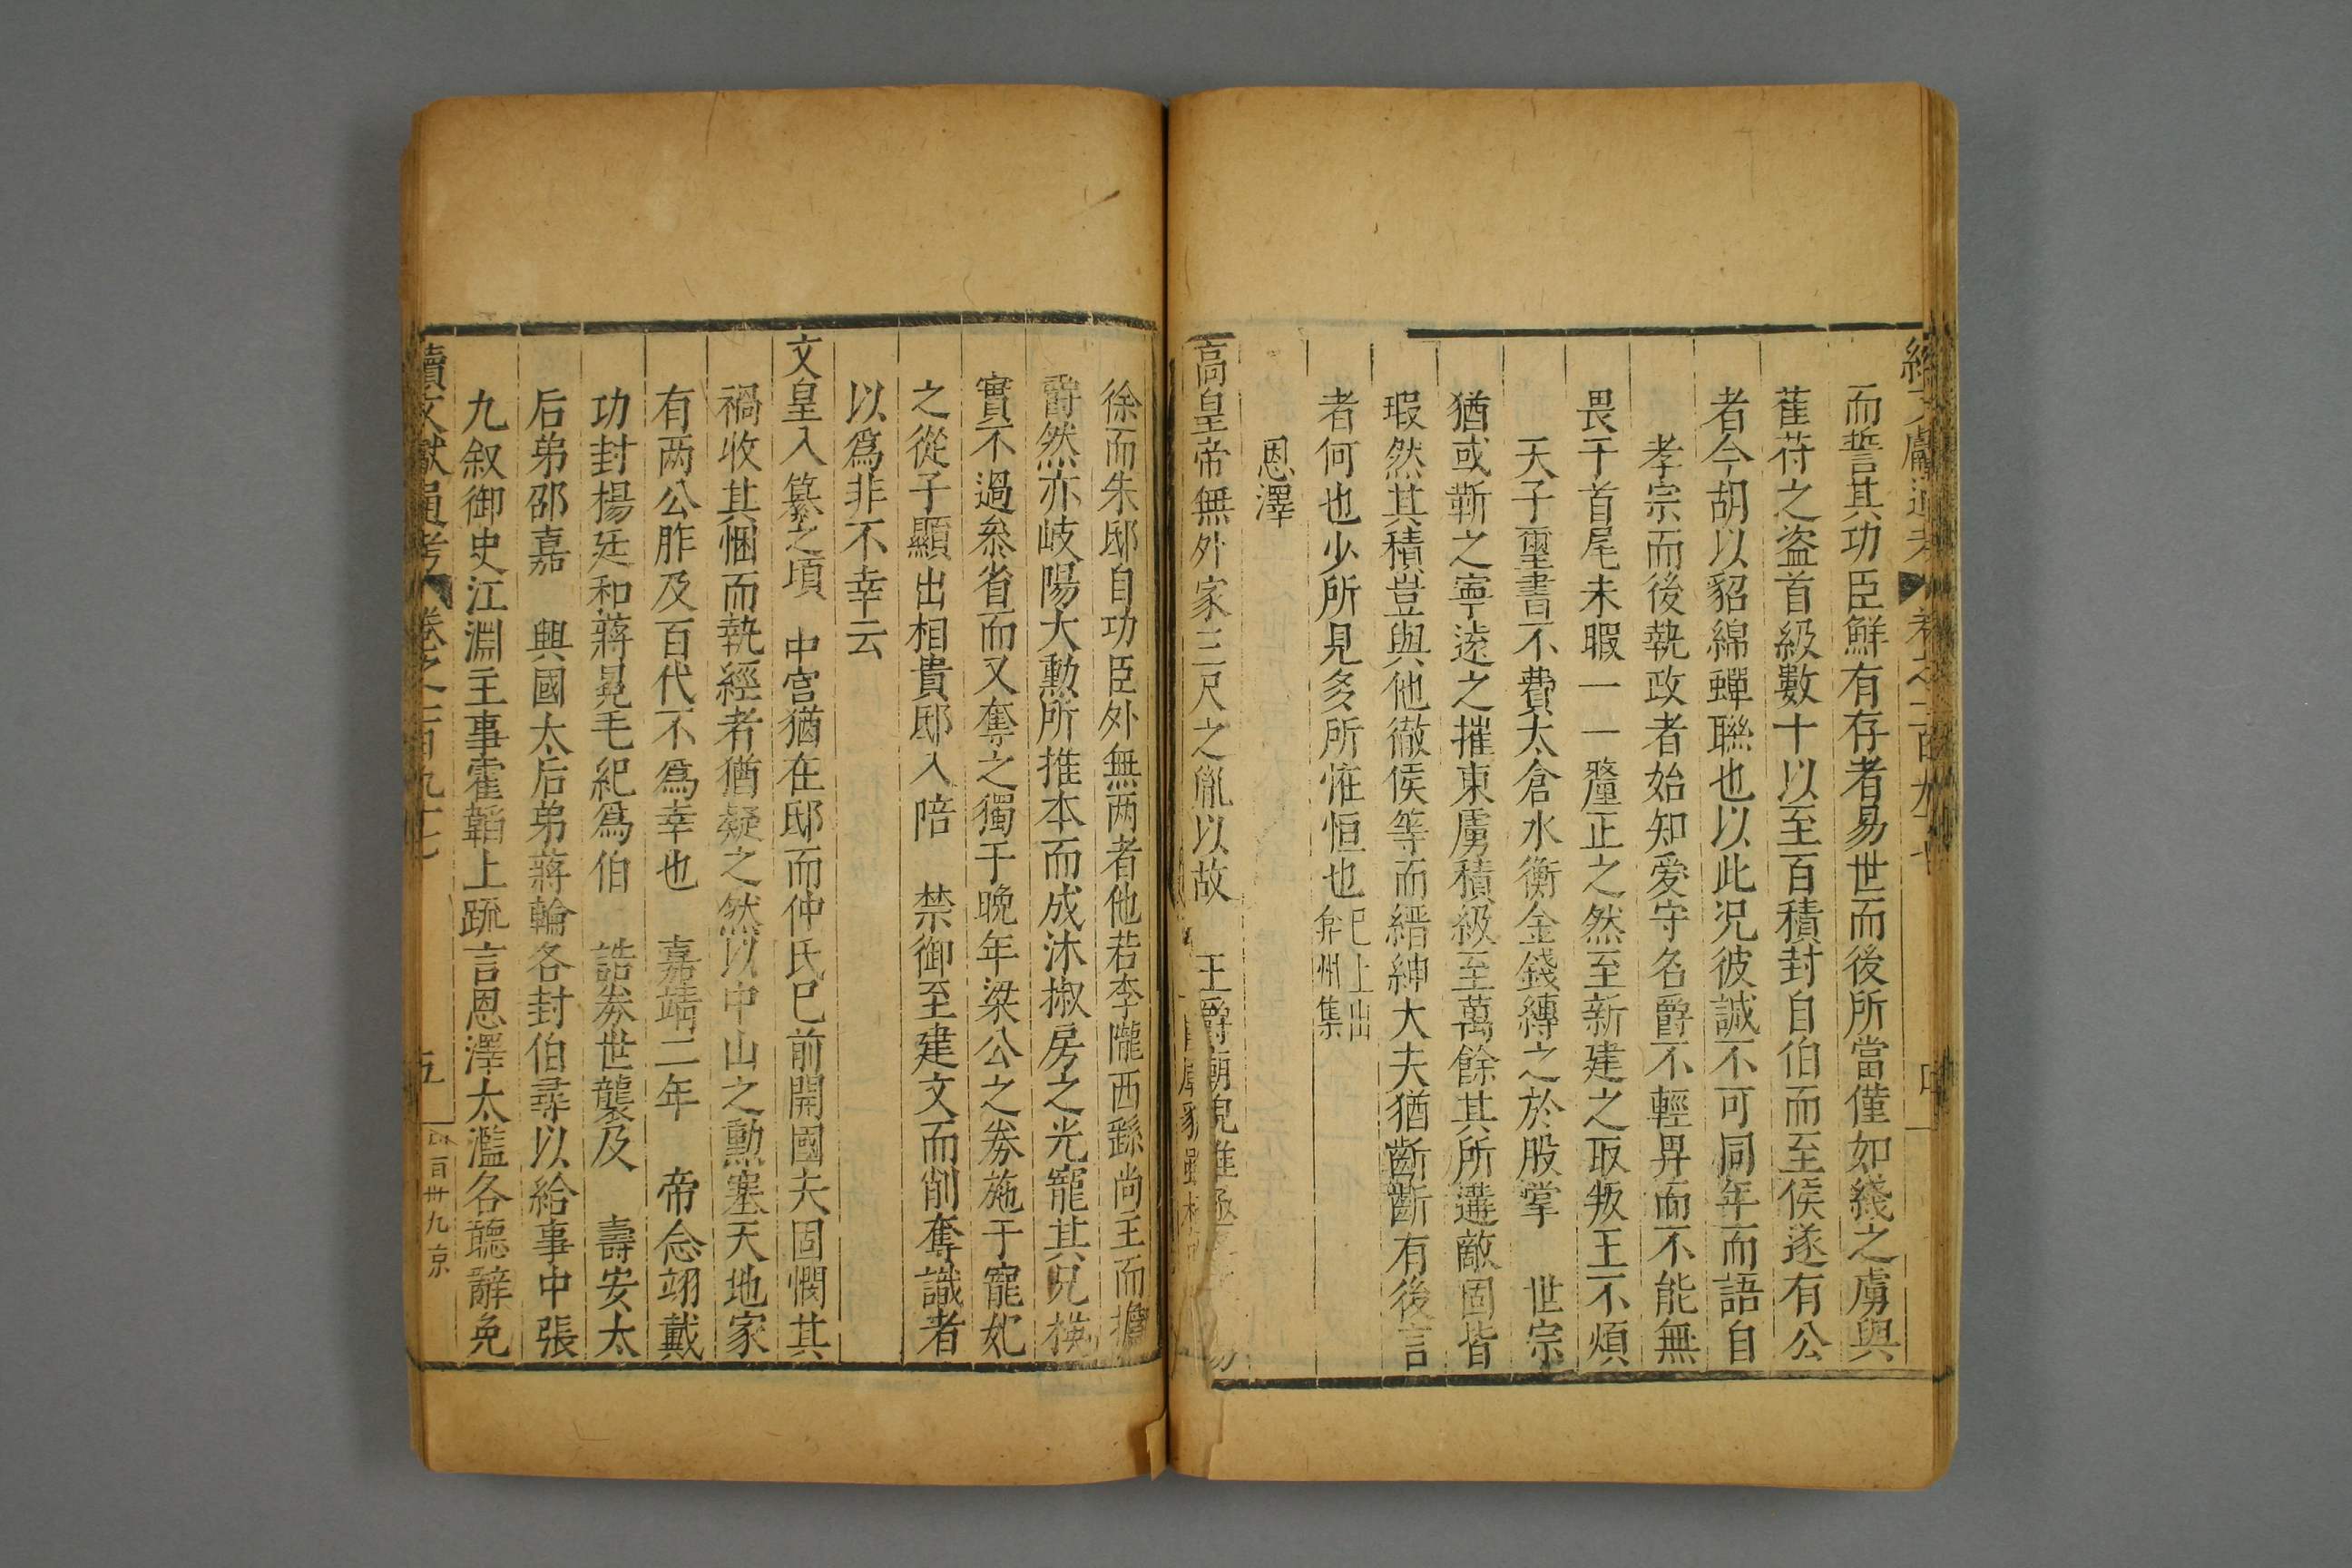 續文獻通考 卷之一百九十七 四
而誓其功臣鮮有存者易世而後所當僅如綫之虜與
萑苻之盜首級數十以至百積封自伯而至侯遂有公
者今胡以貂綿蟬聯也以此況彼誠不可同年而語自
孝宗而後執政者始知愛守名爵不輕畀而不能無
畏于首尾未暇一一釐正之然至新建之取叛王不煩
天子璽書不費太倉水衡金錢縳之於股掌 世宗
猶或靳之寧遠之摧東虜積級至萬餘其所遘敵固皆
瑕然其積豈與他徹侯等而縉紳大夫猶斷斷有後言
者何也少所見多所恠恒也 已上出弇州集
恩澤
高皇帝無外家三尺之胤以故 王爵廟貌
徐而朱邸自功臣外無两者他若李隴西繇尚主而擴
爵然亦岐陽大勳所推本而成沐椒房之光寵其兄模
實不過叅省而又奪之獨于晚年梁公之劵施于寵妃
之從子顯出相貴邸入陪 禁御至建文而削奪識者
以爲非不幸云
文皇入纂之項 中宮猶在邸而仲氏巳前開國夫固憫其
禍收其悃而執經者猶疑之然以中山之勳塞天地家
有两公胙及百代不爲幸也 嘉靖二年 帝念翊戴
功封楊廷和蔣冕毛紀爲伯 誥劵世襲及 壽安太
后弟邵嘉 興國太后弟蔣輪各封伯尋以給事中張
九叙御史江淵主事霍韜上疏言恩澤太濫各聽辭免
續文獻通考 卷之一百九十七 五 四百卅九京